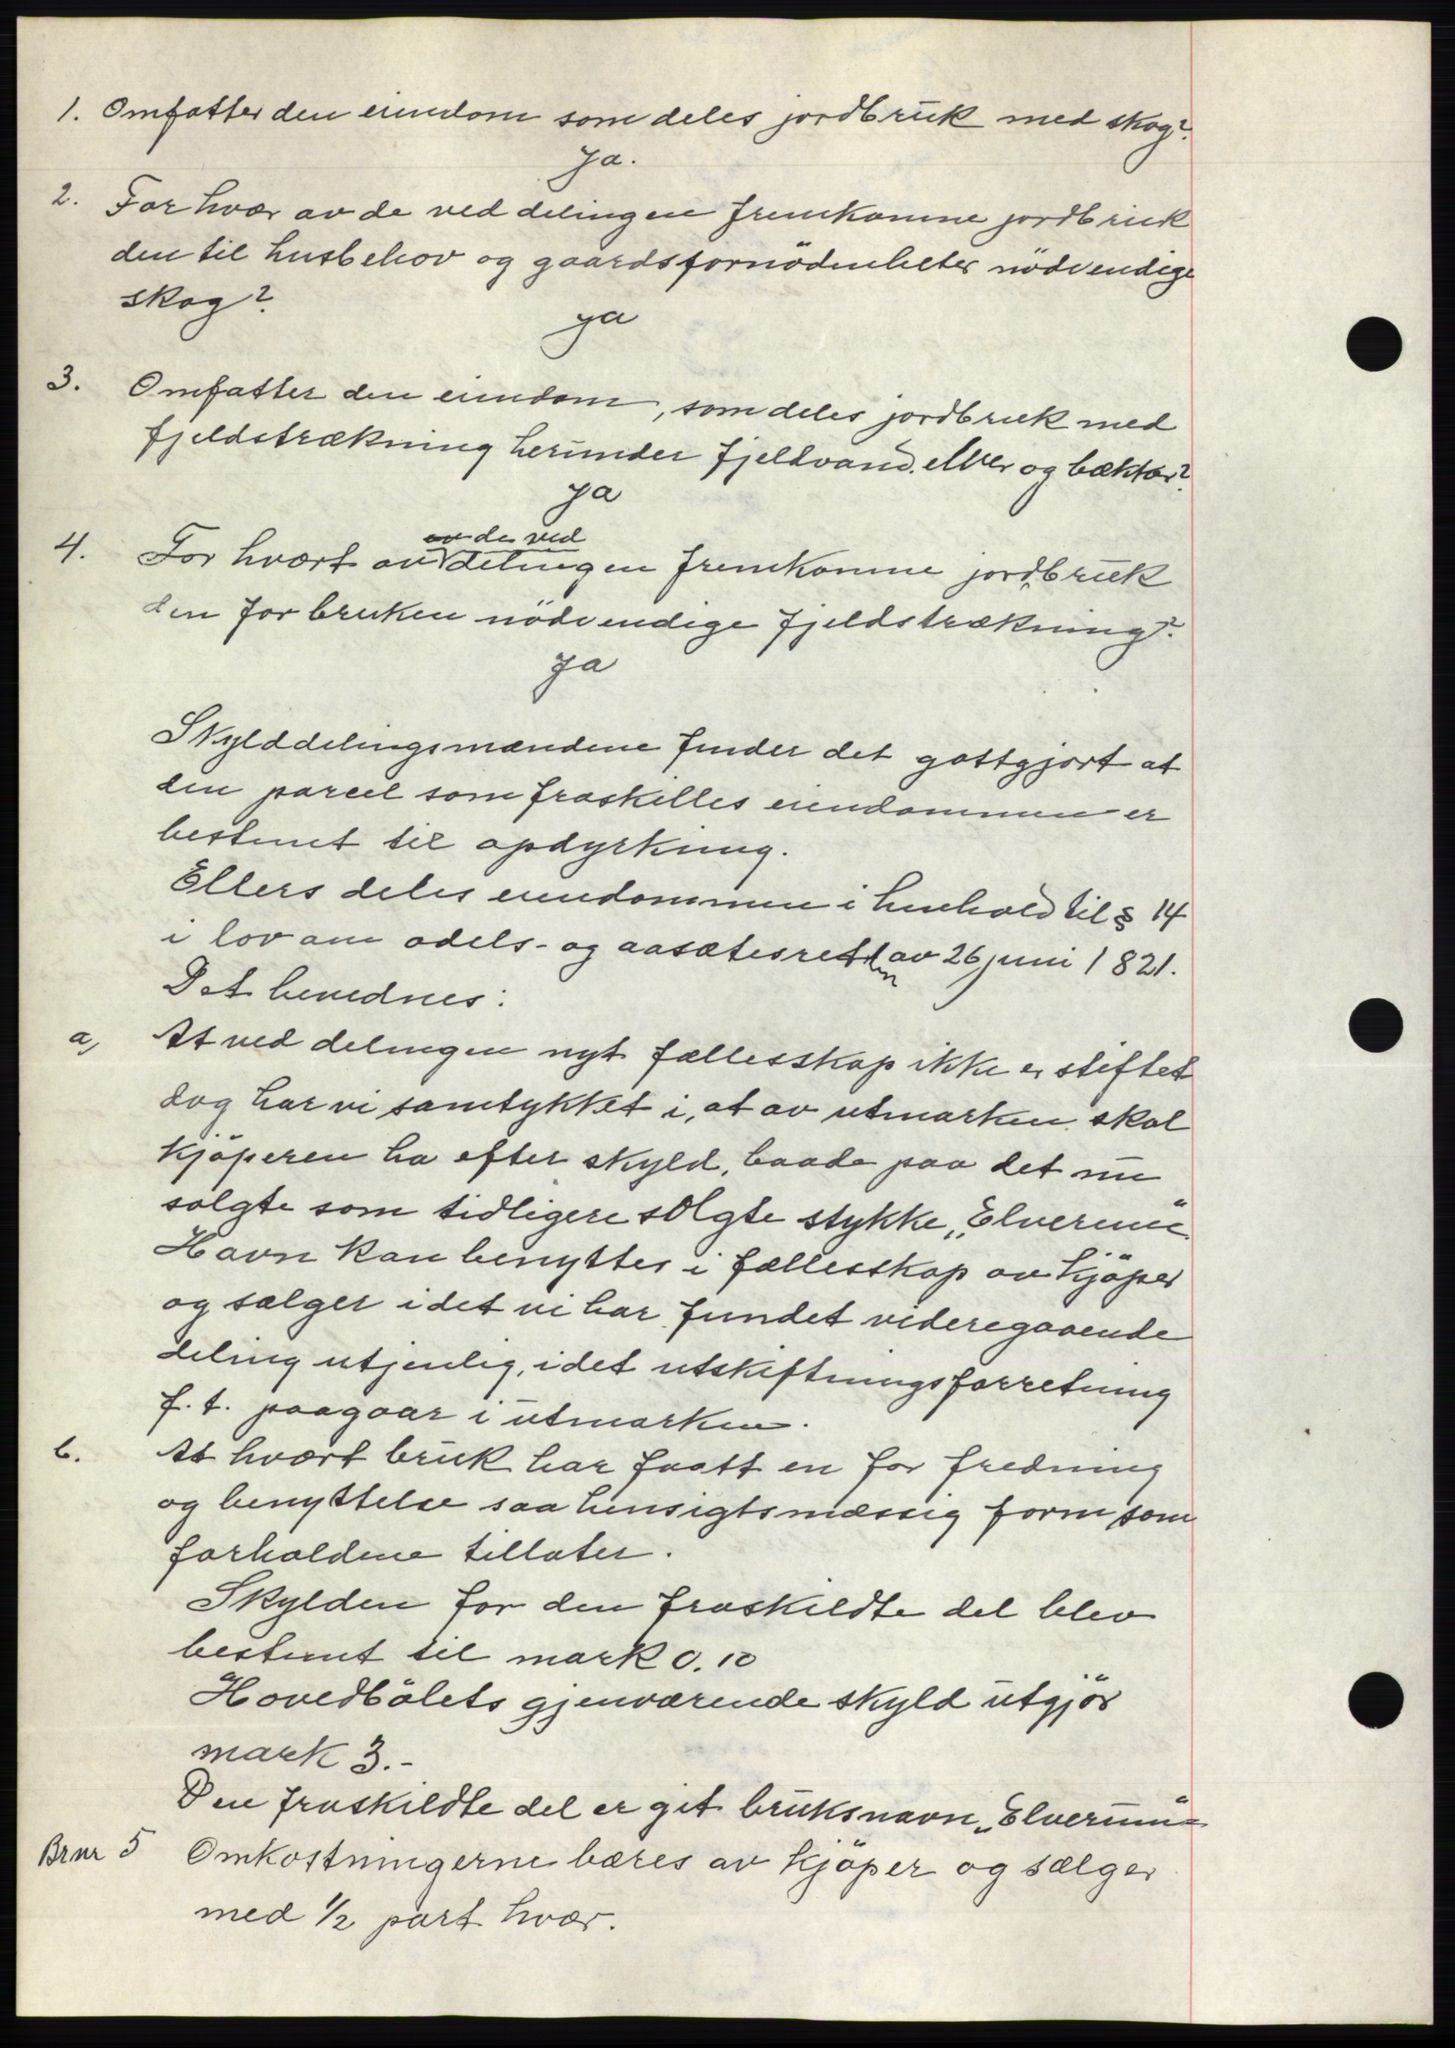 1. Omfatter den eiendom som deles jordbruk med skog?
Ja.
2. For hvær av de ved delingen fremkomne jordbruk
den til husbehov og gaardsfornödenheter nödvendige
skog?
Ja
3. Omfatter den eiendom, som deles jordbruk med
fjeldstrækning herunder fjeldvand, elver og bækker?
Ja
av de ved
4. For hvært av delingen fremkomne jordbruk
den for bruken nödvendige fjeldstrækning?
Ja
Skylddelingsmændene finder det gottgjort at
den parcel som fraskilles eiendommen er
bestemt til opdyrkning.
Ellers deles eiendommen i henhold til § 14
i lov om odels- og aasætesretten av 26 juni 1821.
Det bevidnes:
a, At ved delingen nyt fællesskap ikke er stiftet
dog har vi samtykket i, at av utmarken skal
kjöperen ha efter skyld, baade paa det nu
solgte som tidligere solgte stykke „Elverum“.
Havn kan benyttes i fællesskap av kjöper
og sælger idet vi har fundet videregaaende
deling utjenlig, idet utskiftningsforretning
f. t. paagaar i utmarken.
b. At hvært bruk har faatt en for fredning
og benyttelse saa hensigtsmæssig form som
forholdene tillater.
Skylden for den fraskildte del blev
bestemt til mark 0.10
Hovedbölets gjenværende skyld utgjör
mark 3.-
Den fraskildte del er git bruksnavn „Elverum“
Brnr 5 Omkostningerne bæres av kjöper og sælger
med 1/2 part hvær.